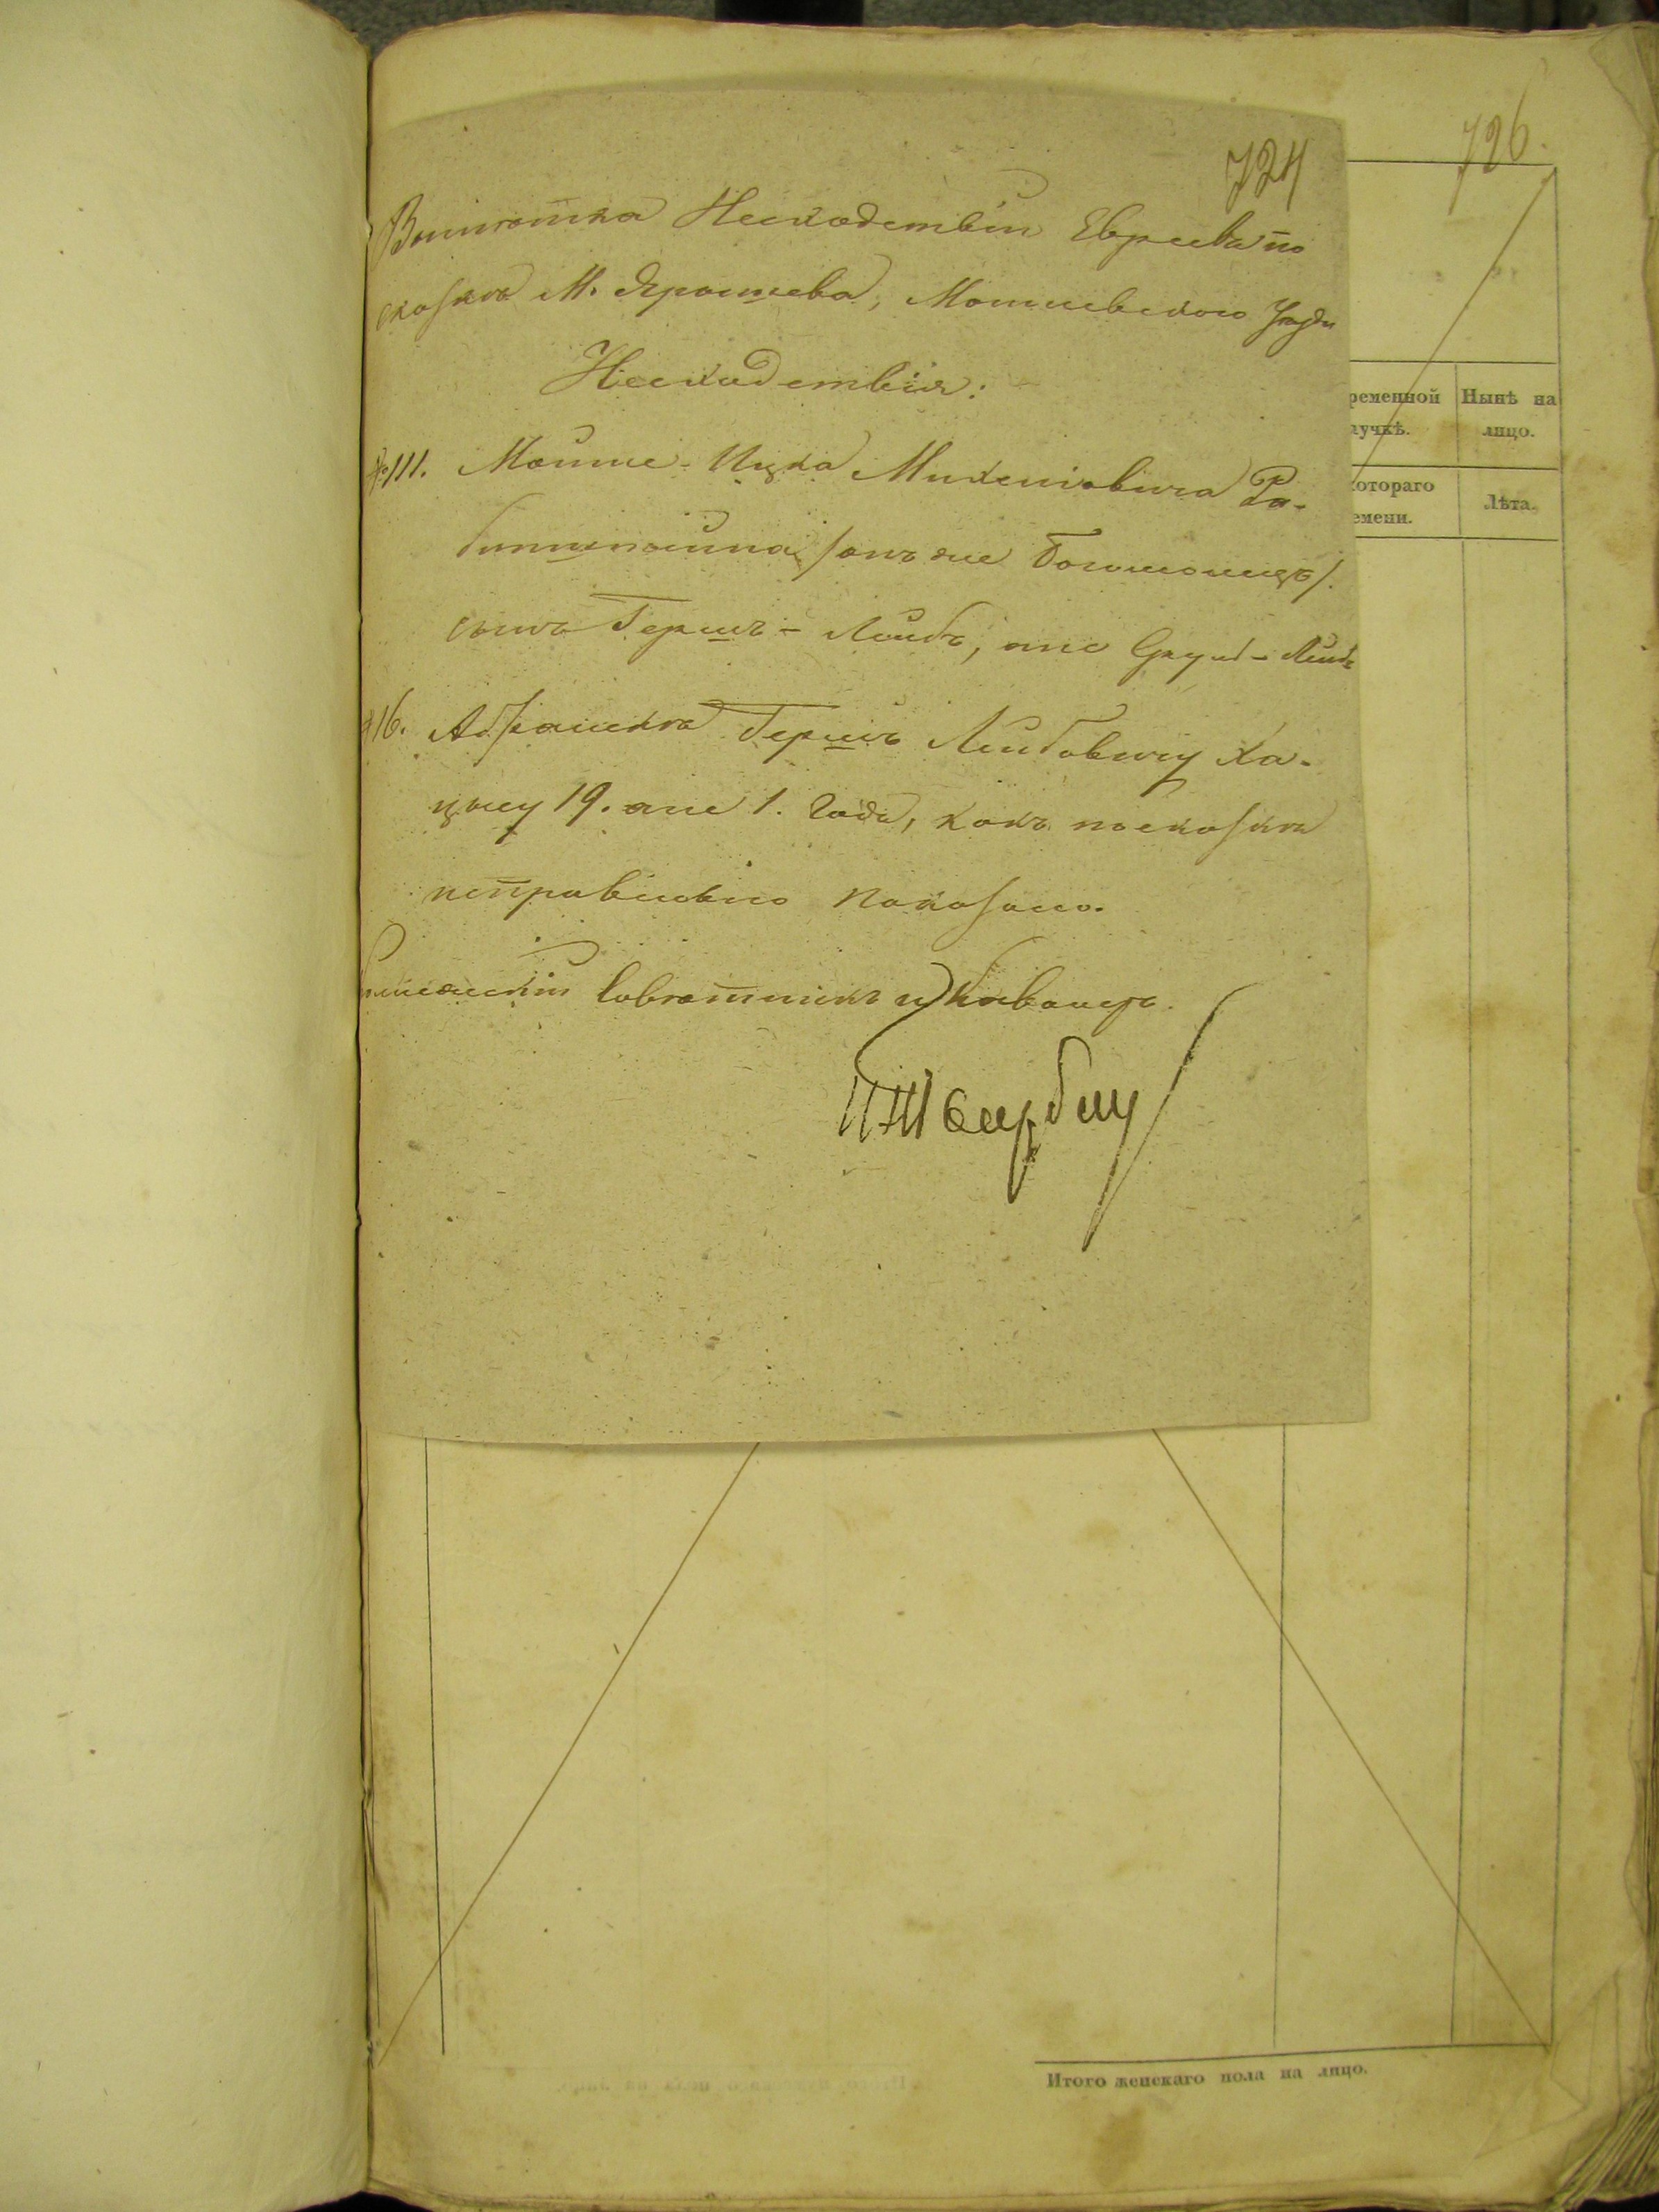 724
726.
Выписка Несходствій Евреевъ по
сказкѣ М. Ярышева, Могилевского Уѣзда
Несходствія:
№ 111. Мошке-Ицка Михелевича Ра-
бинштейна /онъ же Богомолецъ/.
сынъ Гершъ-Лейбъ, а не Сруль-Лейбъ
116. Абрамка Гершъ Лейбовичу Ха-
цису 19. а не 1. Года, какъ по сказкѣ
неправильно показано.
Совѣтникъ и Кавалеръ
ременной
лучкѣ.
Нынѣ на
лицо.
котораго
емени.
Лѣта.
Итого женскаго пола на лицо.